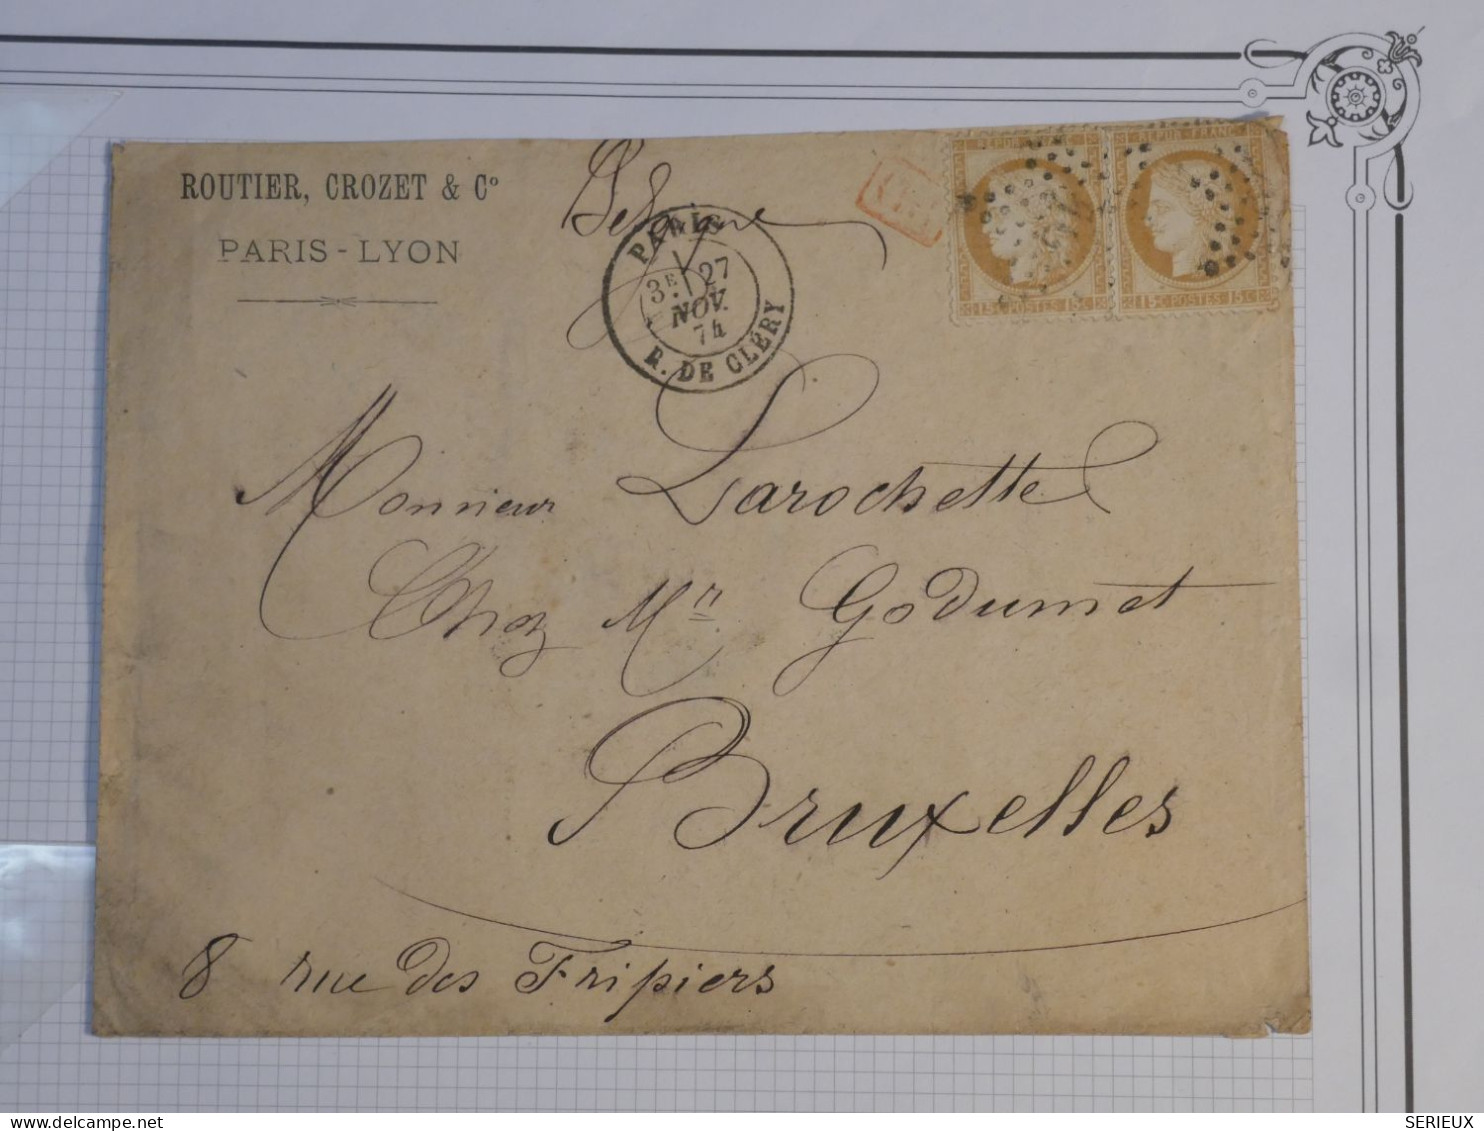 ROUTIER, CROZET & Cº
PARIS - LYON
Belgique
PARIS
3E 27
NOV.
74
R. DE CLÉRY
REPUB. FRANC.
15 C. POSTES 15 C.
15 C. POSTES 15 C.
Monsieur Larochette
Chez Mr Godumet
Bruxelles
8 rue des Fripiers
www.delcampe.net
SERIEUX